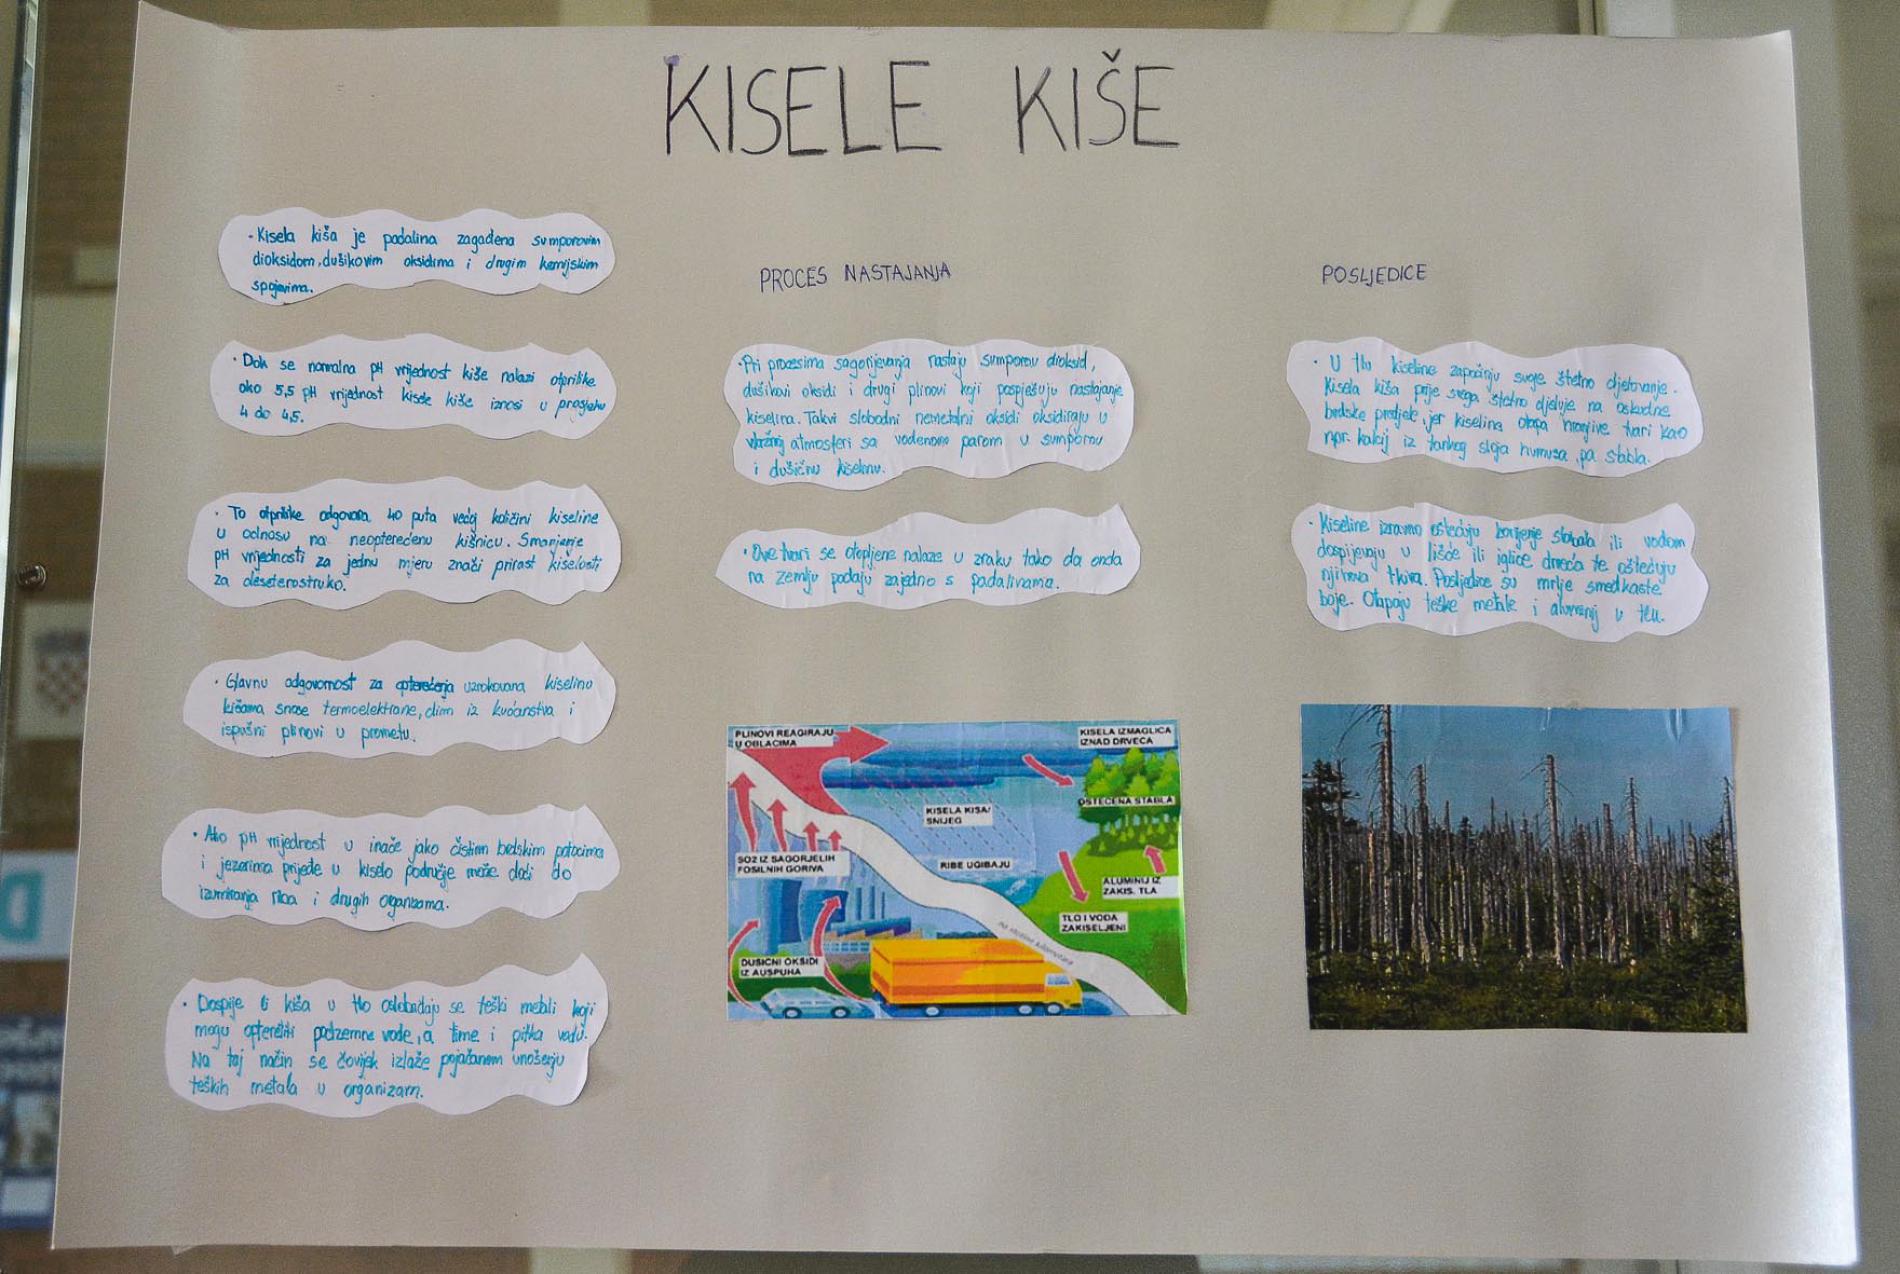 KISELE KIŠE
· Kisela kiša je padalina zagađena sumporovim
dioksidom, dušikovim oksidima i drugim kemijskim
spojevima.
· Dok se normalna pH vrijednost kiše nalazi otprilike
oko 5,5 pH vrijednost kisele kiše iznosi u prosjeku
4 do 4,5.
· To otprilike odgovara 40 puta većoj količini kiseline
u odnosu na neopterećenu kišnicu. Smanjenje
pH vrijednosti za jednu mjeru znači prirast kiselosti
za deseterostruko.
· Glavnu odgovornost za opterećenja uzrokovana kiselino
kišama snose termoelektrane, dim iz kućanstva i
ispušni plinovi u prometu.
· Ako pH vrijednost u inače jako čistim brdskim potocima
i jezerima prijeđe u kiselo područje može doći do
izumiranja riba i drugih organizama.
· Dospije li kiša u tlo oslobađaju se teški metali koji
mogu opteretiti podzemne vode, a time i pitku vodu.
Na taj način se čovjek izlaže pojačanom unošenju
teških metala u organizam.
PROCES NASTAJANJA
· Pri procesima sagorijevanja nastaju sumporov dioksid,
dušikovi oksidi i drugi plinovi koji pospješuju nastajanje
kiselina. Takvi slobodni nemetalni oksidi oksidiraju u
vlažnoj atmosferi sa vodenom parom u sumpornu
i dušičnu kiselinu.
· Ove tvari se otopljene nalaze u zraku tako da onda
na zemlju padaju zajedno s padalinama.
PLINOVI REAGIRAJU
U OBLACIMA
KISELA IZMAGLICA
IZNAD DRVECA
OSTECENA STABLA
KISELA KISA/
SNIJEG
SO2 IZ SAGORJELIH
FOSILNIH GORIVA
RIBE UGIBAJU
ALUMINIJ IZ
ZAKIS. TLA
TLO I VODA
ZAKISELJENI
na stotine kilometara
DUSICNI OKSIDI
IZ AUSPUHA
POSLJEDICE
· U tlu kiseline započinju svoje štetno djelovanje.
Kisela kiša prije svega štetno djeluje na oskudne
brdske predjele, jer kiselina otapa hranjive tvari kao
npr. kalcij iz tankog sloja humusa, pa stabla.
· Kiseline izravno oštećuju korijenje stabala ili vodom
dospijevaju u lišće ili iglice drveća te oštećuju
njihova tkiva. Posljedice su mrlje smeđkaste
boje. Otapaju teške metale i aluminij u tlu.